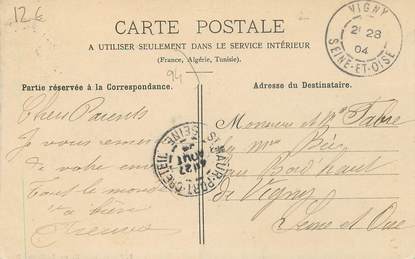 12€
CARTE POSTALE
A UTILISER SEULEMENT DANS LE SERVICE INTÉRIEUR
(France, Algérie, Tunisie).
94
Partie réservée à la Correspondance.
Adresse du Destinataire.
VIGNY
2E 28
04
SEINE-ET-OISE
Chers Parents
Je vous remercie
de votre
Tout le monde
va bien
Monsieur et Mme Fabre
au
Vigny
Seine et Oise
ST MAUR-PORT-CRETEIL
SEINE
27
AOUT
04